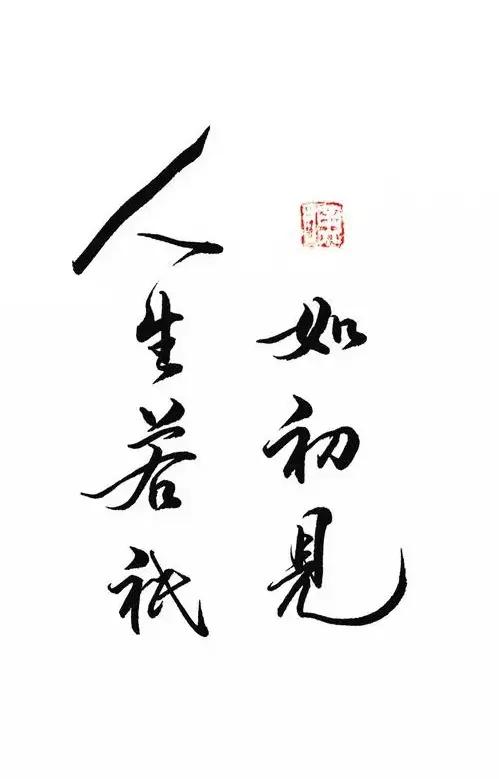 人生若祇
如初見